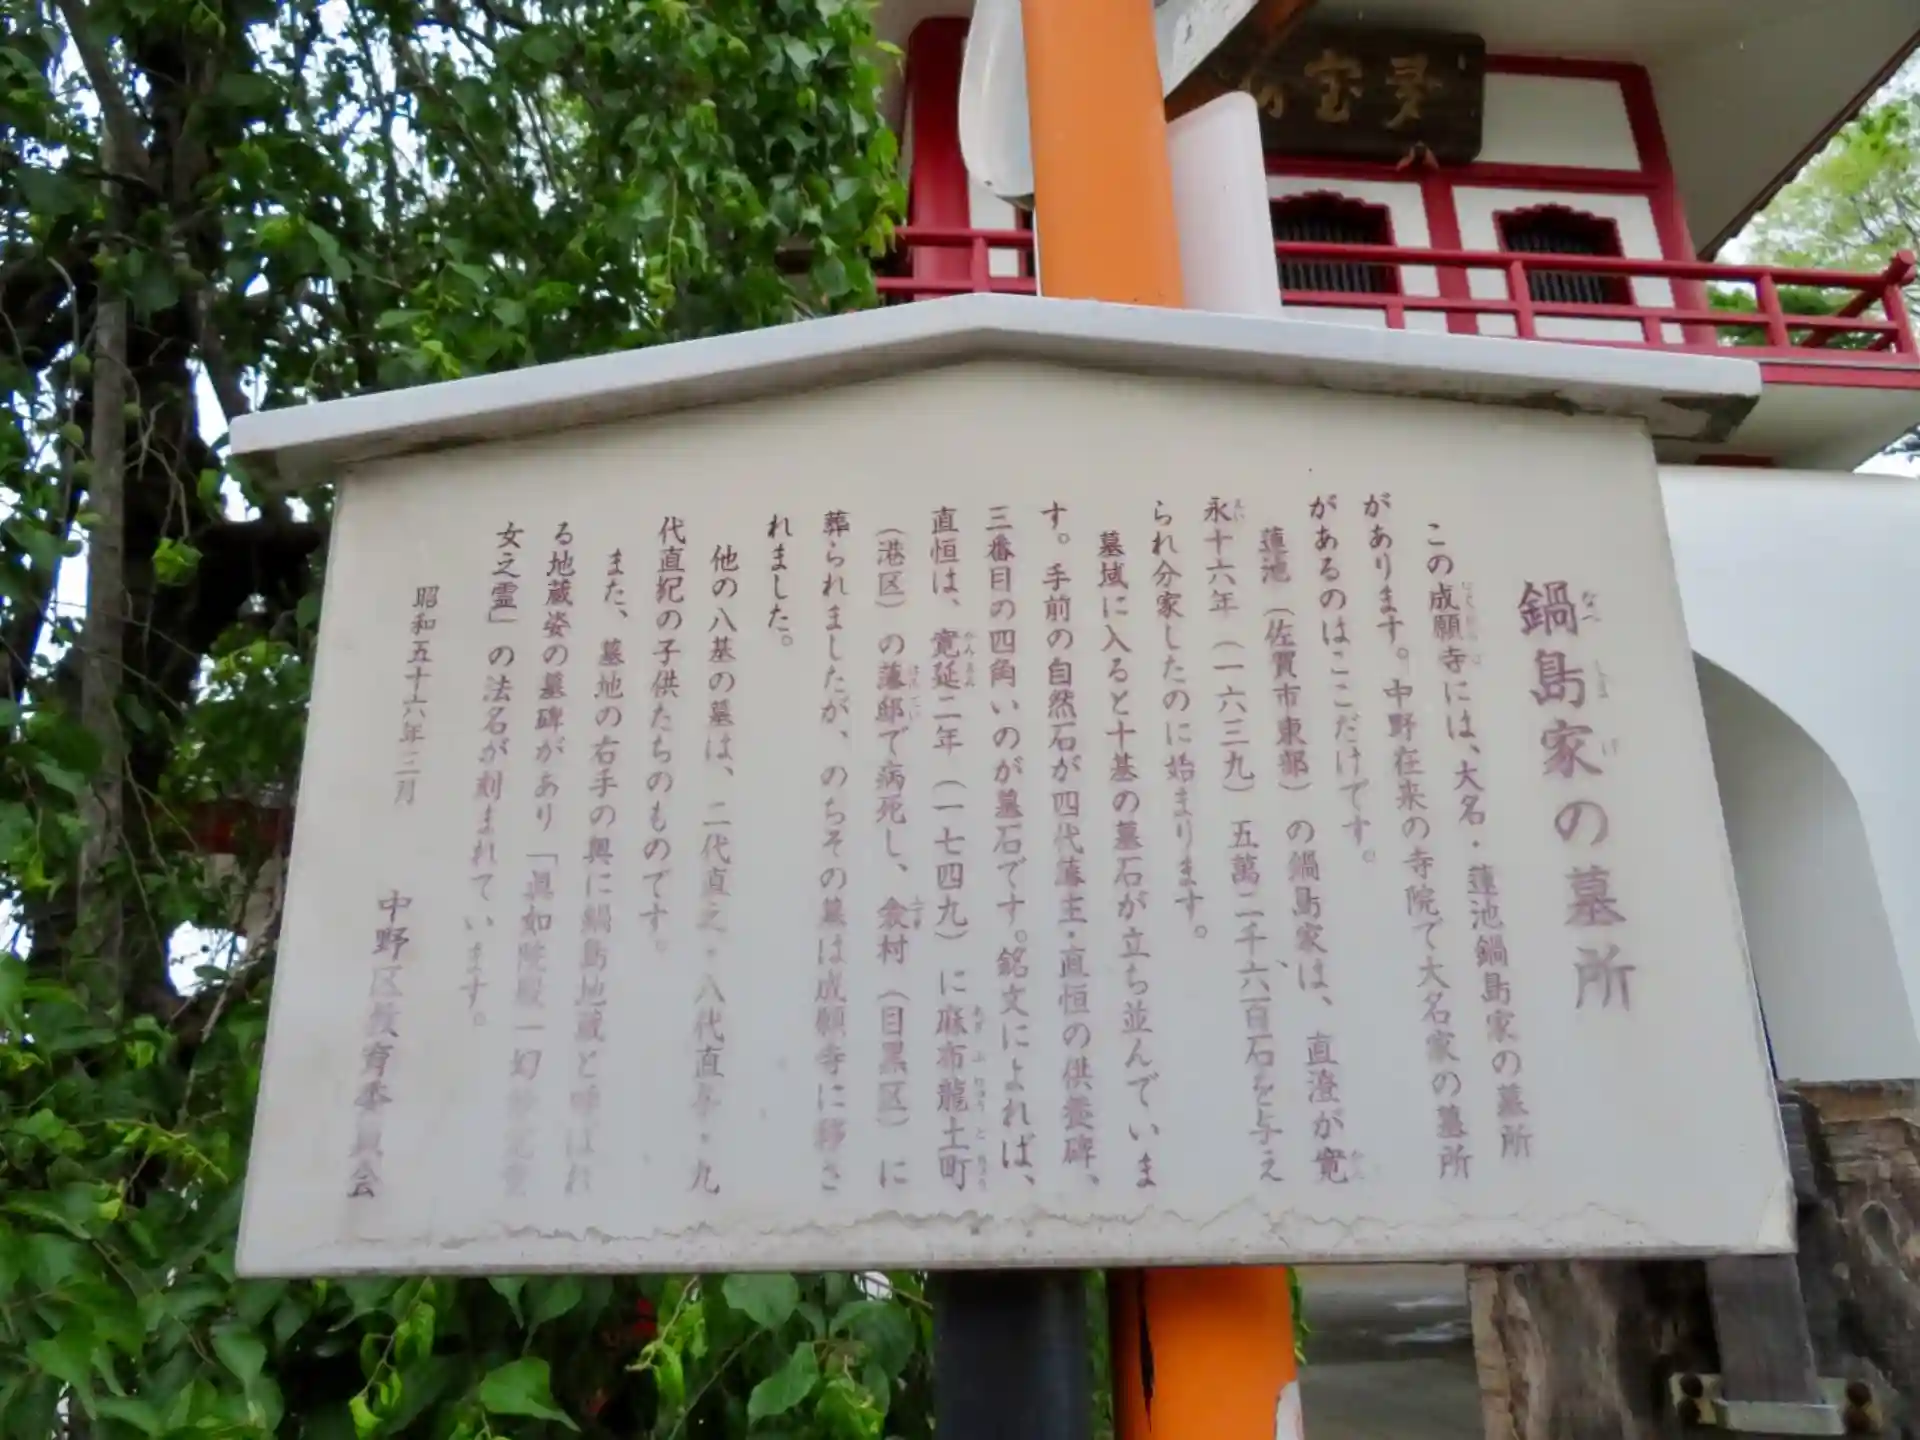 鍋島家の墓所
この成願寺には、大名・蓮池鍋島家の墓所
があります。中野在来の寺院で大名家の墓所
があるのはここだけです。
蓮池（佐賀市東部）の鍋島家は、直澄が寛
永十六年（一六三九）五萬二千六百石を与え
られ分家したのに始まります。
墓域に入ると十基の墓石が立ち並んでいま
す。手前の自然石が四代藩主・直恒の供養碑、
三番目の四角いのが墓石です。銘文によれば、
直恒は、寛延二年（一七四九）に麻布龍土町
（港区）の藩邸で病死し、衾村（目黒区）に
葬られましたが、のちその墓は成願寺に移さ
れました。
他の八基の墓は、二代直之・八代直与・九
代直紀の子供たちのものです。
また、墓地の右手の奥に鍋島地蔵と呼ばれ
る地蔵姿の墓碑があり「眞如院殿一幻
女之霊」の法名が刻まれています。
昭和五十六年三月
中野区教育委員会
宝